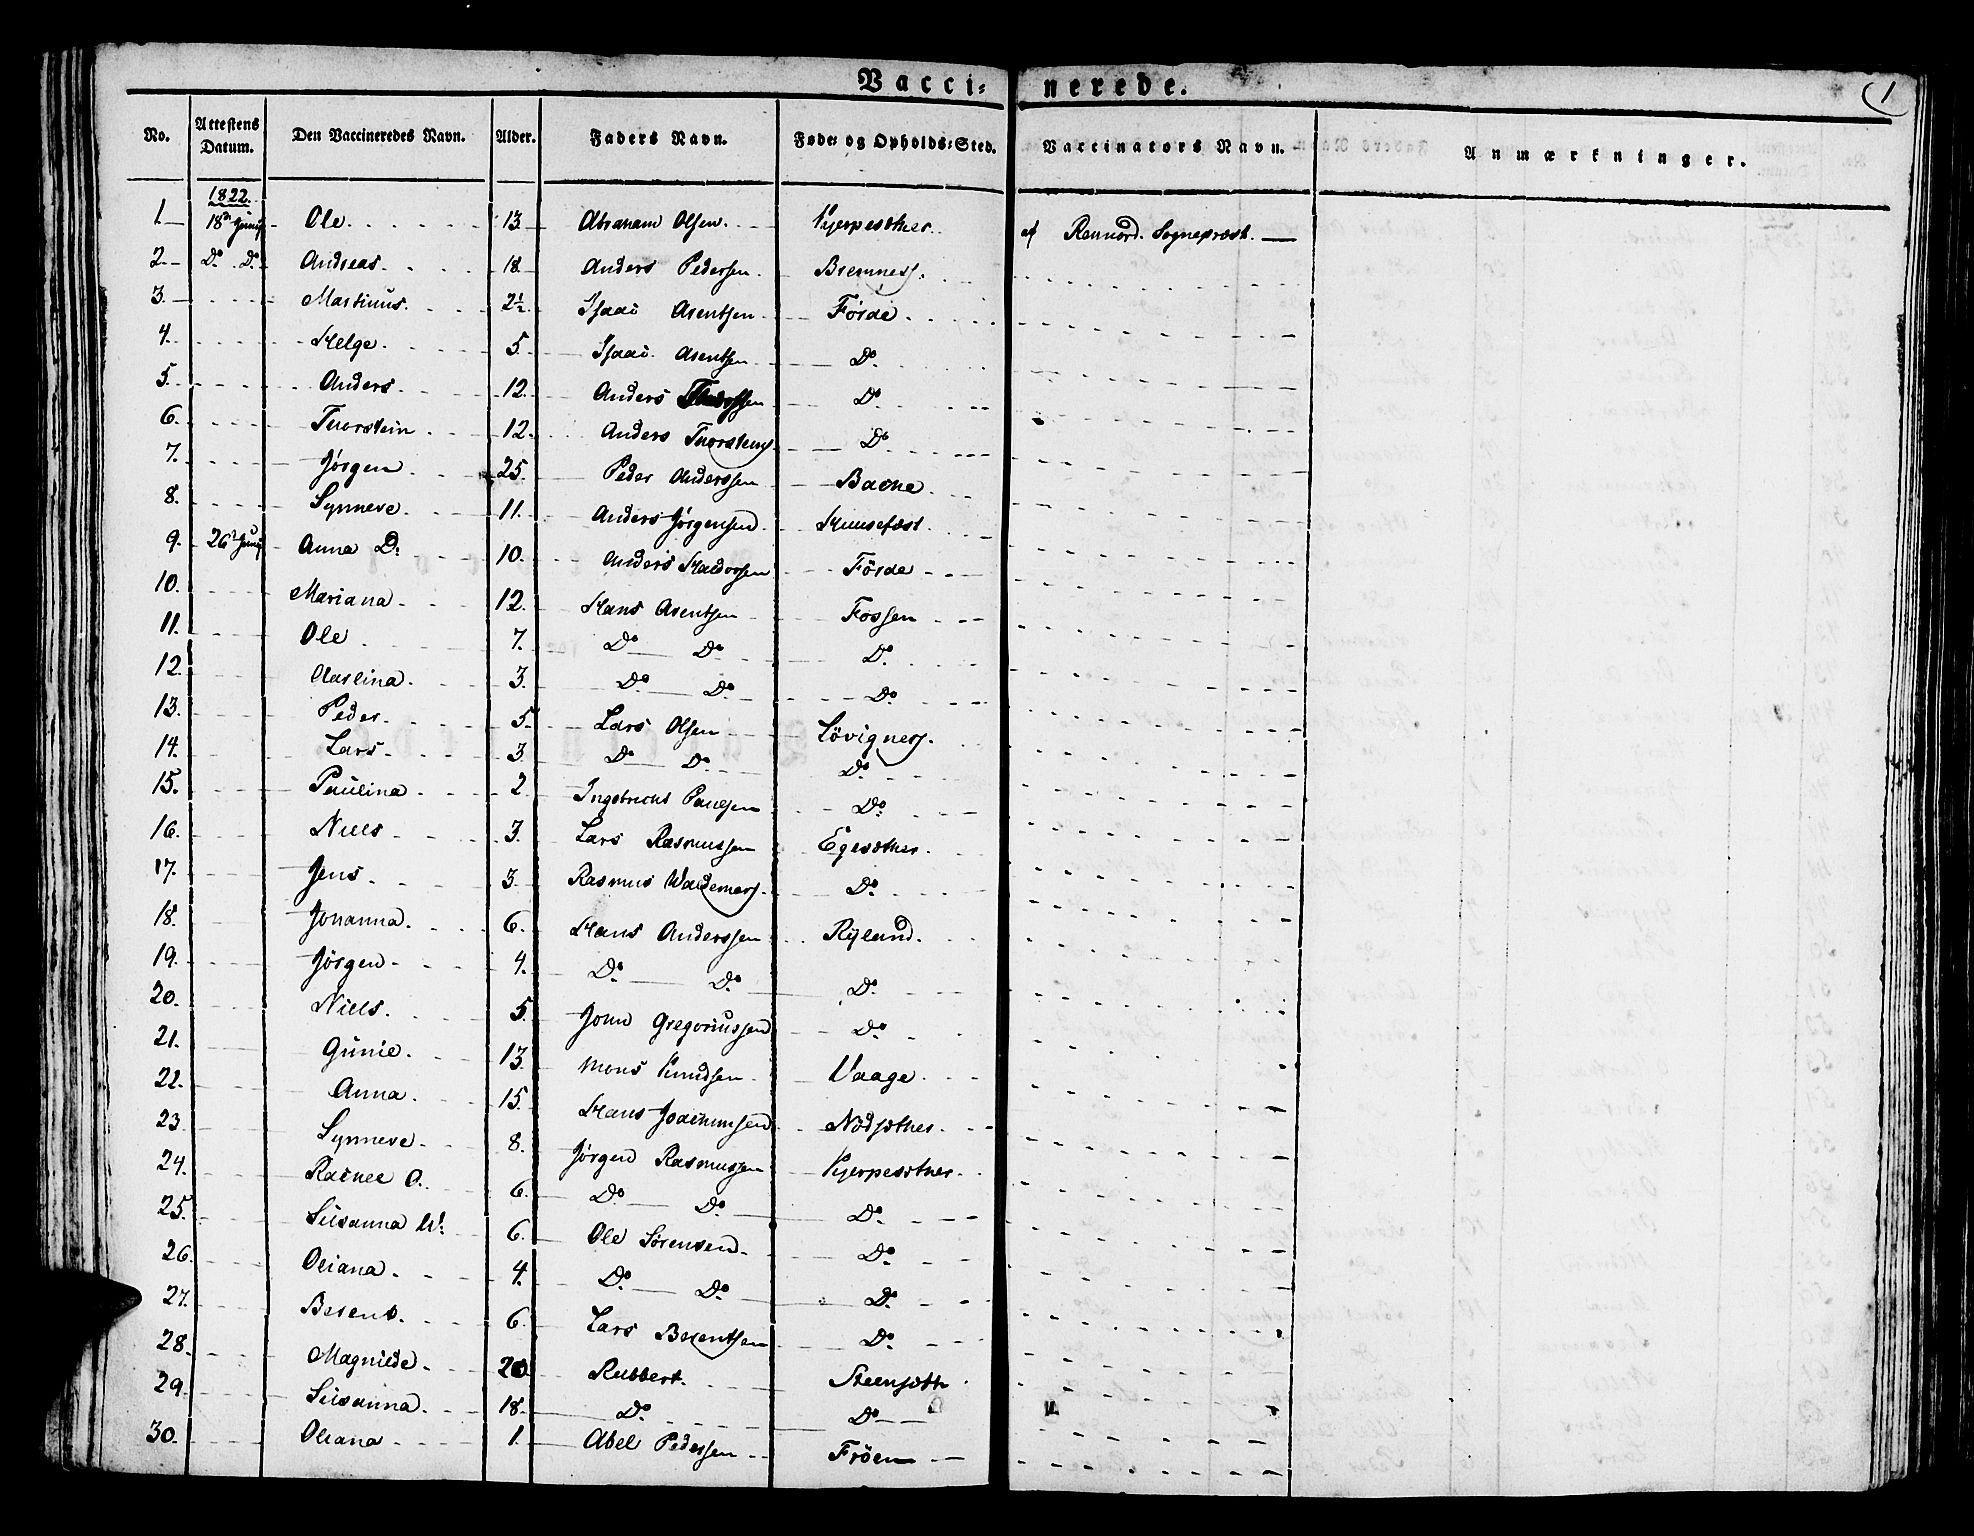 Vacci= nerede.
1
No. Attestens Datum. Den Vaccineredes Navn. Alder. Faders Navn. Føde= og Opholds=Sted. Vaccinators Navn. Anmærkninger.
1822.
1. 18de Junij Ole 13 Abraham Olsen Kjerpesæther af Rennord. Sognepræst.
2. Do. Do. Andreas. 18 Anders Pedersen. Bremness.
3. Martinus. 2½ Isaac Arentsen Förde.
4. Helge. 5. Isaac Arentsen Do.
5. Anders. 12. Anders Do.
6. Thorstein. 12. Anders Thorstens. Do
7. Jörgen 25. Peder Anderssen Bache.
8. Synneve. 11. Anders Jörgensen
9. 26de Junij Anna D: 10. Anders Haldorsen Förde
10. Mariana. 12. Hans Arentsen Fossen
11. Ole 7. Do Do Do.
12. 3. Do Do. Do.
13. Peder. 5. Lars Olsen Lövigness.
14. Lars. 3 Do Do. Do.
15. Paulina 2 Ingebricht Paulsen Do.
16. Niels 3. Lars Rasmussen Egesæther.
17. Jens. 3. Rasmus Waldemars. Do.
18. Johanna. 6. Hans Anderssen Ryland.
19. Jörgen 4. Do Do Do.
20. Niels. 5. John Gregoriussen Do.
21. Gunie. 13. Mons Knudsen Vaage.
22. Anna. 15. Hans Joachimsen Nodsæther.
23. Synneve 8. Jörgen Rasmussen Kjerpesæther.
24. Rachel O. 6. Do Do. Do.
25. Susanna W: 6. Ole Sörensen Do.
26. Oliana. 4. Do. Do. Do.
27. Berent. 6. Lars Berentsen Do.
28. Magnilde. 20 Rubbert. Steensæth
29. Susanna. 18. Do. Do
30. Oliana 1. Abel Pedersen Fröen